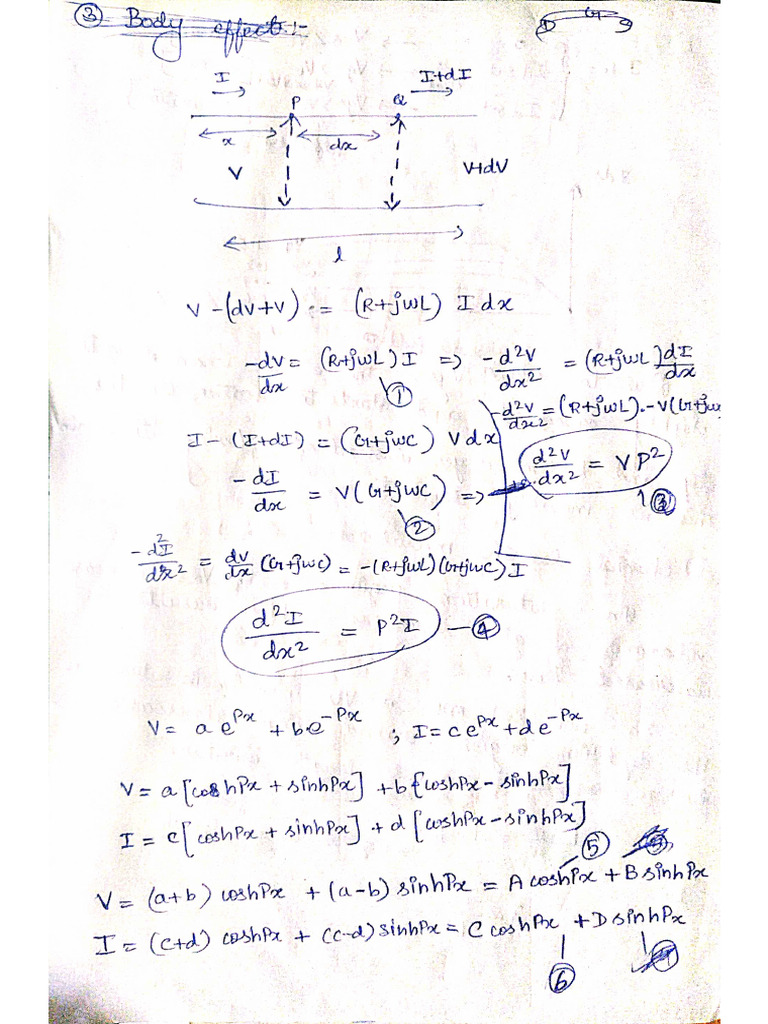 ③ Body effect:-
D G S
I I+dI
P Q
x dx
V V+dV
l
V-(dv+v) = (R+jωL) I dx
-dv/dx = (R+jωL) I => -d²V/dx² = (R+jωL) dI/dx
①
-d²V/dx² = (R+jωL).-V(G+jω
I-(I+dI) = (G+jωC) V dx
d²V/dx² = VP²
③
-dI/dx = V(G+jωC) =>
②
-d²I/dx² = dv/dx (G+jωC) = -(R+jωL)(G+jωC) I
d²I/dx² = P²I — ④
V = a e^Px + b e^-Px ; I = c e^Px + d e^-Px
V = a[coshPx + sinhPx] + b[coshPx - sinhPx]
I = c[coshPx + sinhPx] + d[coshPx - sinhPx]
⑤
V = (a+b) coshPx + (a-b) sinhPx = A coshPx + B sinhPx
I = (c+d) coshPx + (c-d) sinhPx = C coshPx + D sinhPx
⑥